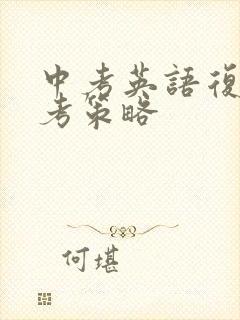 中考英語復
考策略
何堪